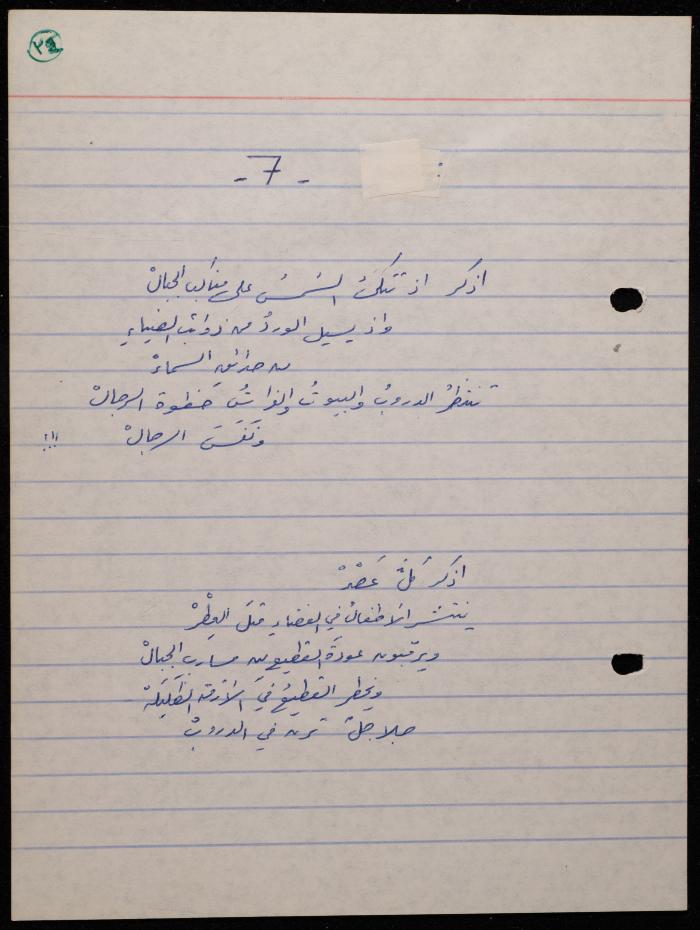 - 7 -
:
اذكر اذ تتكئُ الشمسُ على مناكب الجبالْ
واذ يسيل الوردُ من ذوائب الضياءِ
من حدائقِ السماءْ
تنتظرُ الدروبُ والبيوتُ والفراشُ خطوةَ الرجالْ
ونَفَسَ الرجالْ !!!
اذكر كلَّ عَصْرْ
ينتشر الاطفالُ في الفضاءِ مثلَ العِطْرْ
ويرقبون عودةَ القطيع من مساربِ الجبالْ
ويخطر القطيعُ في الأزقة الظليلهْ
جلاجلٌ ترن في الدروبْ